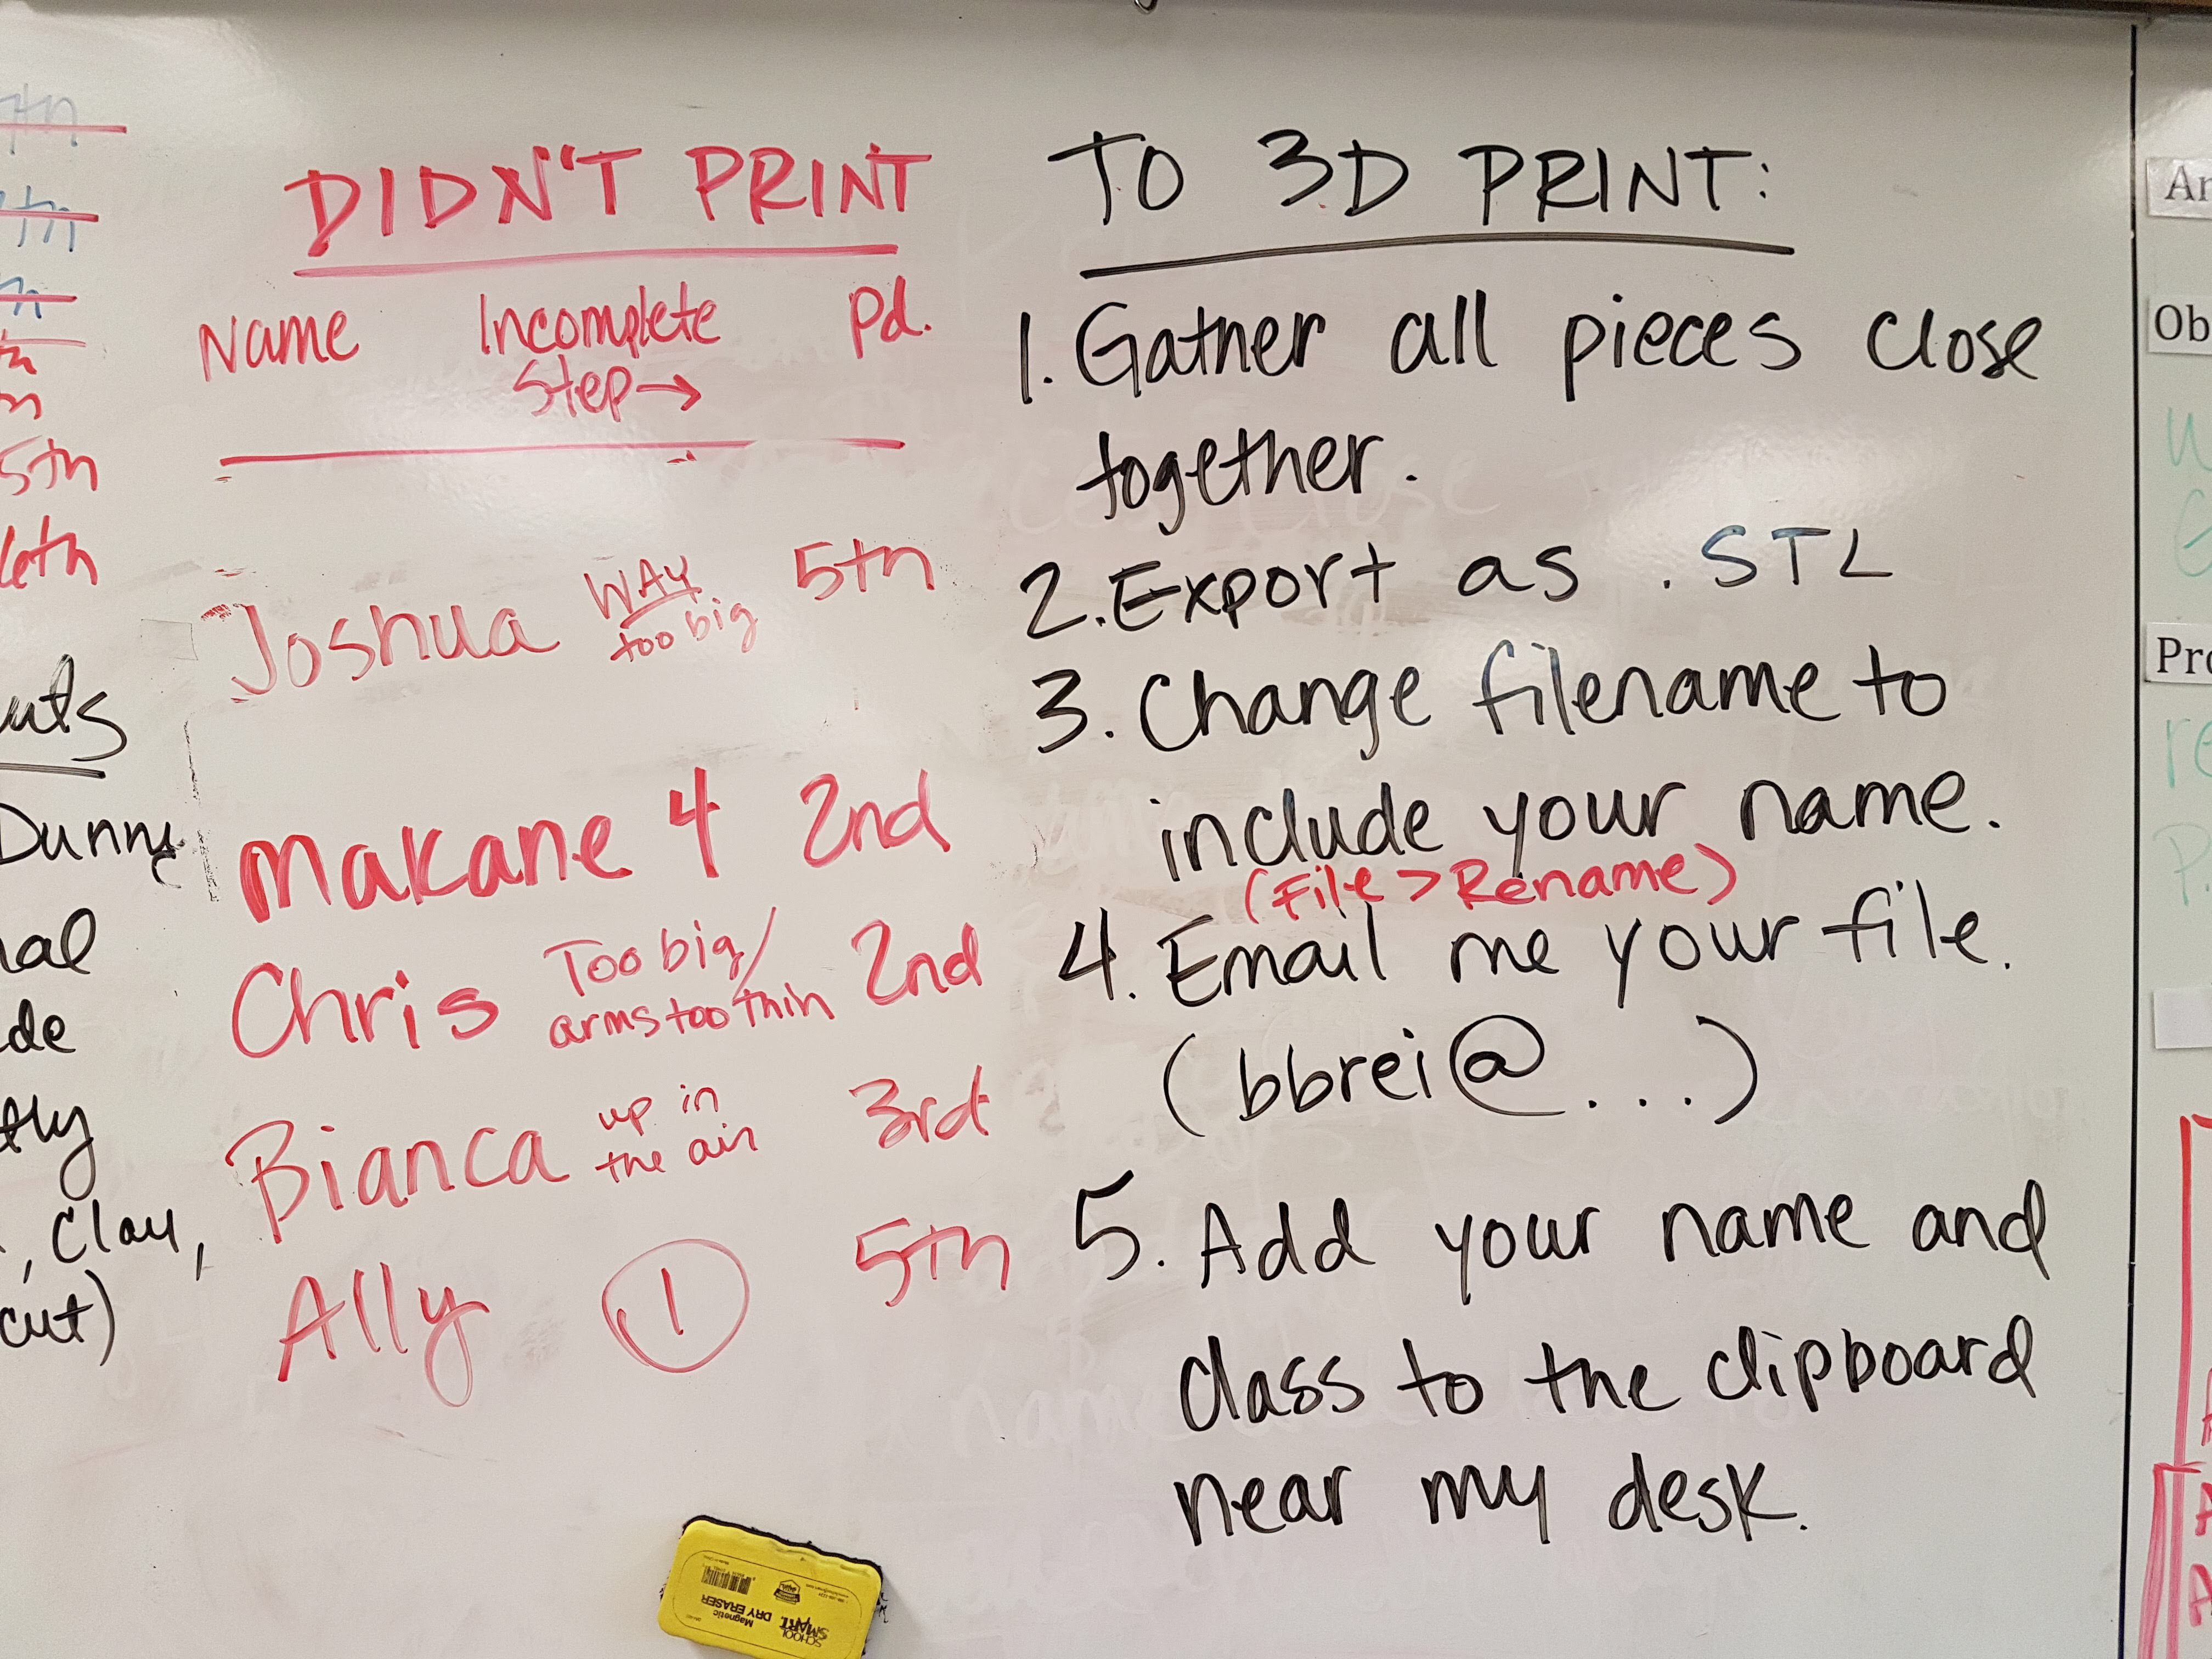 DIDN'T PRINT
Name Incomplete Pd.
Step→
Joshua WAY too big 5th
Makane 4 2nd
Chris Too big/ arms too thin 2nd
Bianca up in the air 3rd
Ally 1 5th
TO 3D PRINT:
1. Gather all pieces close
together.
2. Export as .STL
3. Change filename to
include your name.
(File > Rename)
4. Email me your file.
(bbrei@...)
5. Add your name and
class to the clipboard
near my desk.
5th
6th
uts
Dunny
al
de
tly
, Clay,
cut)
An
Ob
Pro
re
SCHOOL
SMART
Magnetic
DRY ERASER